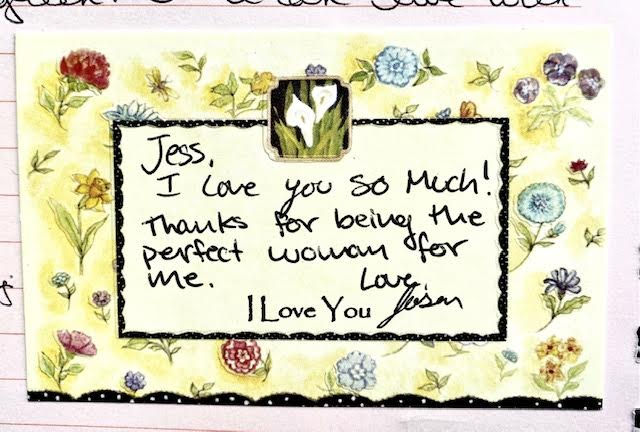 Jess,
I Love you so Much!
Thanks for being the
perfect woman for
me.
Love,
I Love You
Jason